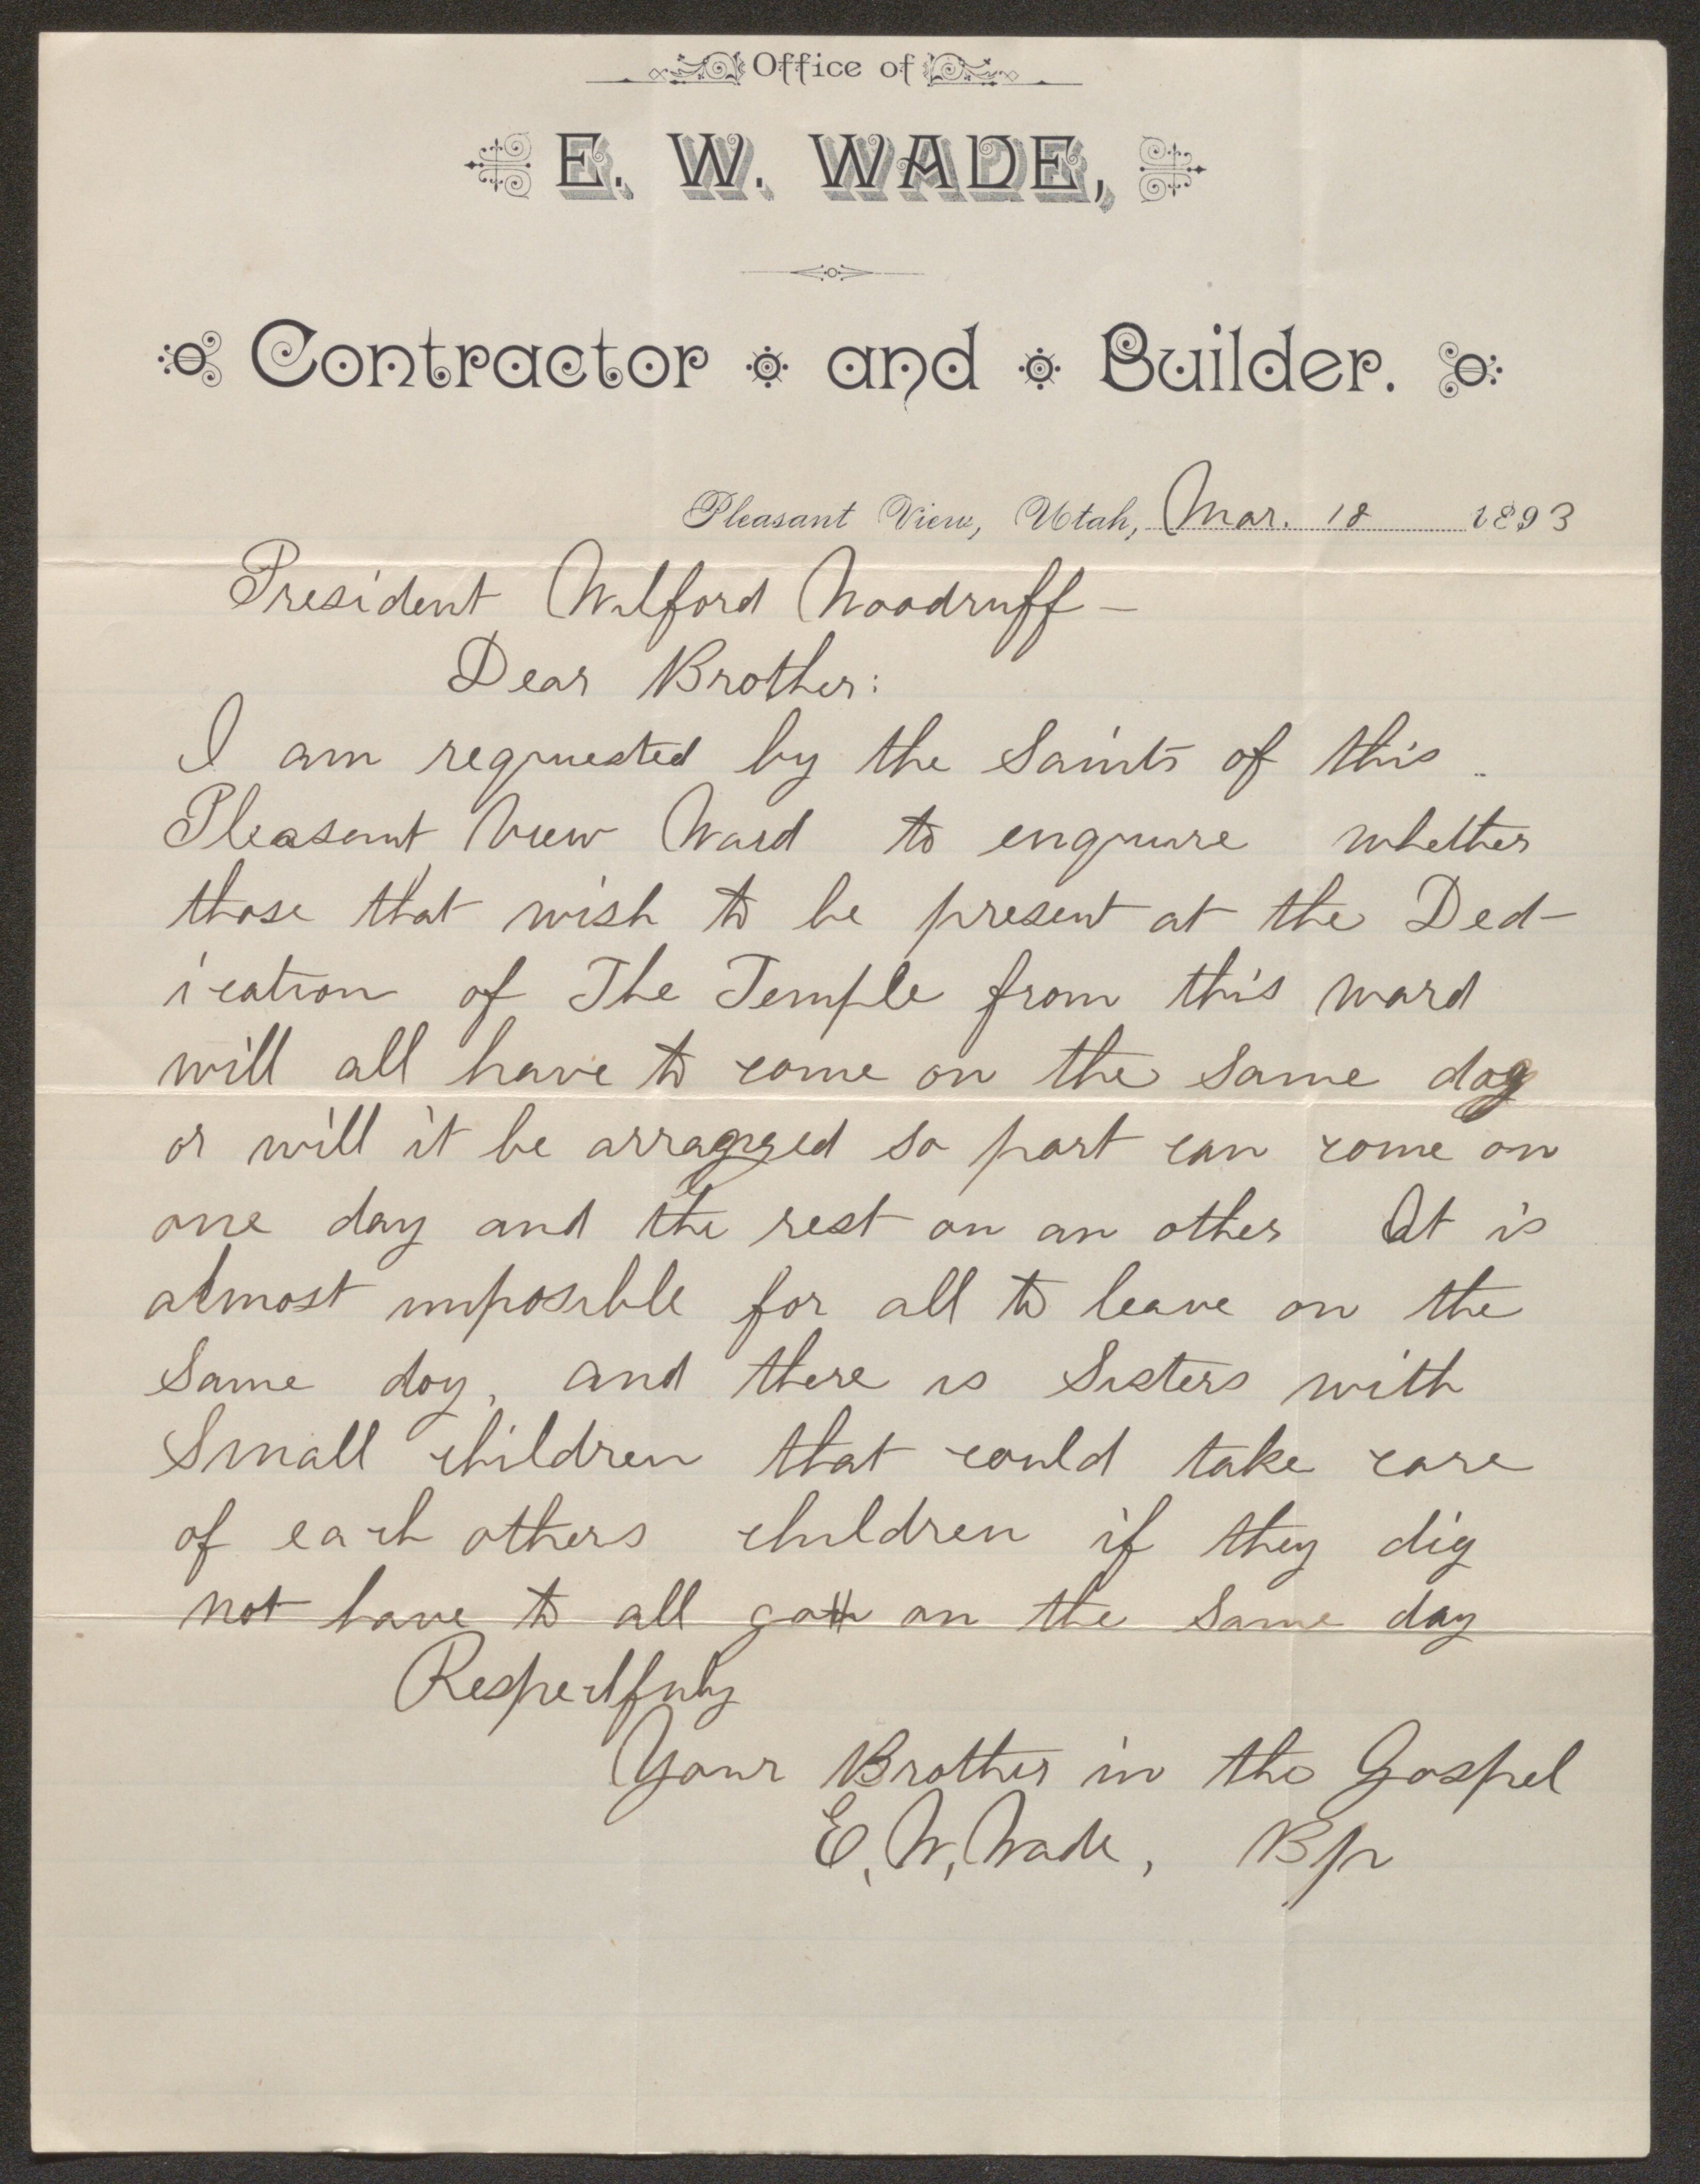 Office of
E. W. WADE,
Contractor and Builder.
Pleasant View, Utah, Mar. 18 1893
President Wilford Woodruff –
Dear Brother:
I am requested by the Saints of this
Pleasant View Ward to enquire whether
those that wish to be present at the Ded-
ication of The Temple from this ward
will all have to come on the same day
or will it be arragged so part can come on
one day and the rest on an other It is
almost imposible for all to leave on the
Same day, and there is Sisters with
Small children that could take care
of each others children if they dig
not have to all go on the same day
Respectfuly
Your Brother in the Gospel
E. W. Wade, Bp